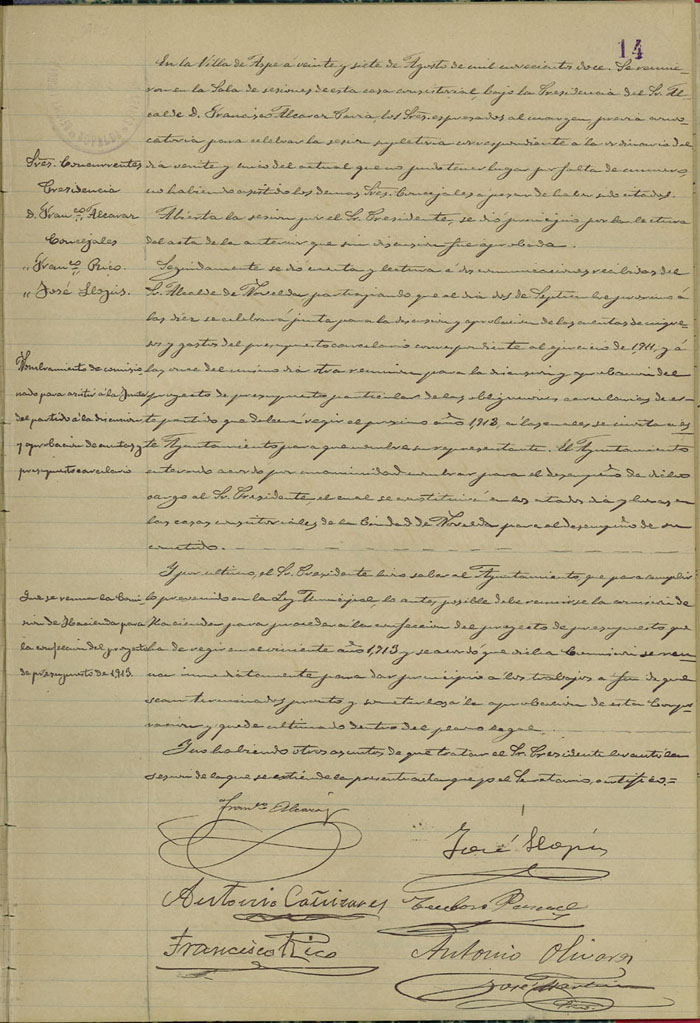 14
En la Villa de Aspe a veinte y siete de Agosto de mil novecientos doce. Se reunie-
ron en la Sala de sesiones de esta casa consistorial, bajo la Presidencia del Sr. Al-
calde D. Francisco Alcaraz los Sres. espresados al margen, previa convo-
catoria para celebrar la sesion supletoria correspondiente a la ordinaria del
dia veinte y cinco del actual que no pudo tener lugar por falta de numero,
no habiendo asistido los demas Sres. Concejales a pesar de haber sido citados.
Abierta la sesion por el Sr. Presidente, se dió principio por la lectura
del acta de la anterior que sin discusion fue aprobada.
Seguidamente se dió cuenta y lectura á dos comunicaciones recibidas del
Sr. Alcalde de Novelda participando que el dia dos de Septiembre proximo á
las diez se celebrará junta para la discusion y aprobacion de las cuentas de ingre-
sos y gastos del presupuesto carcelario correspondiente al ejercicio de 1,911, y á
las once del mismo dia otra reunion para la discusion y aprobacion del
proyecto de presupuesto particular de las obligaciones carcelarias de es-
te partido que deberá regir el proximo año 1,913, á las cuales se invita á es-
te Ayuntamiento para que nombre su representante. El Ayuntamiento
enterado acordó por unanimidad nombrar para el desempeño de dicho
cargo al Sr. Presidente el cual se constituirá en los citados dia y horas en
las casas consistoriales de la Ciudad de Novelda para el desempeño de su
cometido.
Y por ultimo, el Sr. Presidente hizo saber al Ayuntamiento, que para cumplir
lo prevenido en la Ley Municipal, lo antes posible debe reunirse la comision de
Hacienda para proceder á la confeccion del proyecto de presupuesto que
ha de regir en el viniente año 1,913 y se acordó que dicha Comision se reu-
na inmediatamente para dar principio á los trabajos a fin de que
sean terminados pronto y someterlos á la aprobacion de esta Corpo-
racion y quede ultimado dentro del plazo legal.
Y no habiendo otros asuntos de que tratar el Sr. Presidente levantó la
sesion de la que se estiende la presente acta que yo el Secretario, certifico.=
Sres. Concurrentes
Presidencia
D. Franco. Alcaraz
Concejales
" Franco. Rico
" José Llopis
Nombramiento de comisio
nado para asistir á la Junta
del partido á la discusion
y aprobacion de cuentas y
presupuesto carcelario
Que se reuna la Comi-
sion de Hacienda para
la confeccion del proyecto
de presupuesto de 1913.
Franco Alcaraz
José Llopis
Antonio Cañizares
Francisco Rico
Antonio Olivares
José